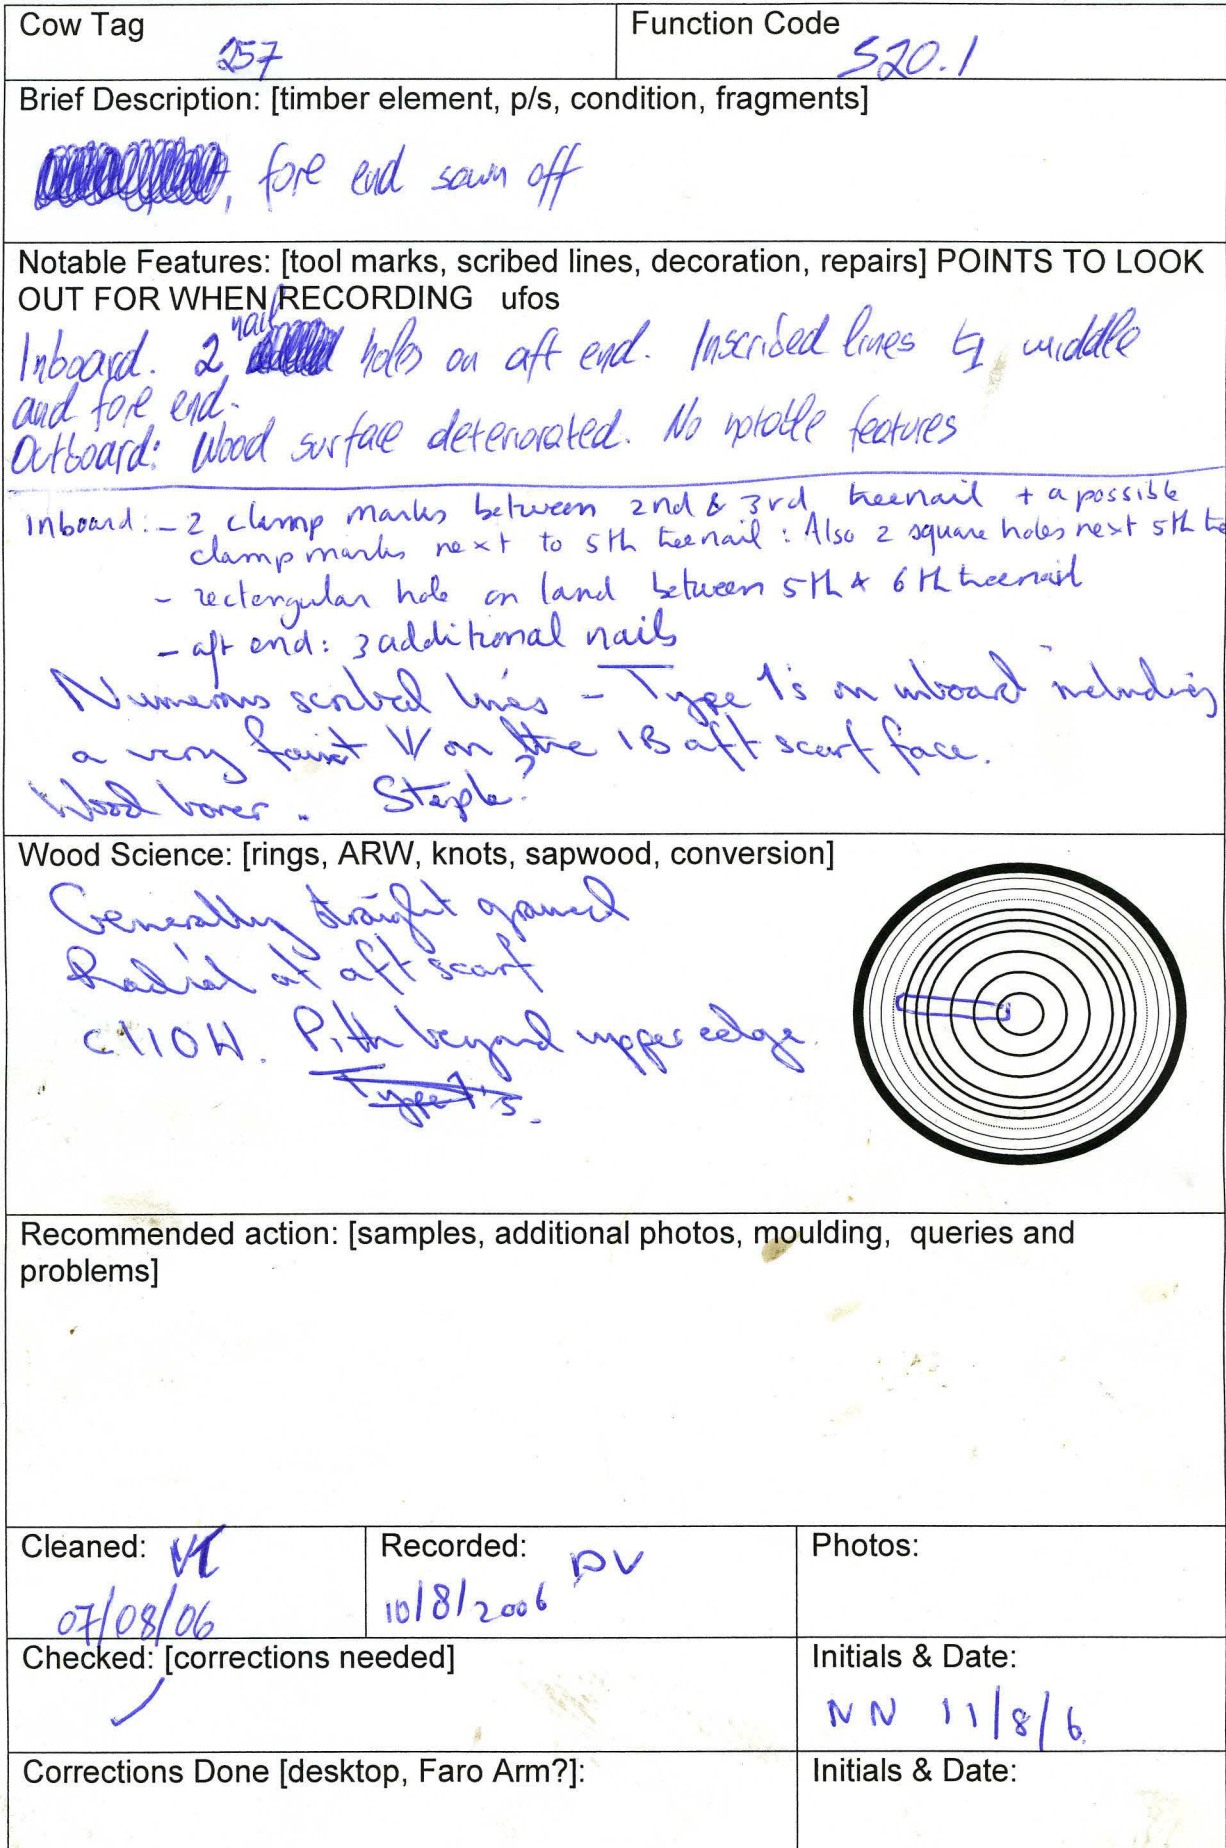 Cow Tag
257
Function Code
S20.1
Brief Description: [timber element, p/s, condition, fragments]
, fore end sawn off
Notable Features: [tool marks, scribed lines, decoration, repairs] POINTS TO LOOK
OUT FOR WHEN RECORDING ufos
Inboard. 2 nail holes on aft end. Inscribed lines middle
and fore end.
Outboard: Wood surface deteriorated. No notable features
Inboard: - 2 clamp marks between 2nd & 3rd treenail + a possible
clamp marks next to 5th treenail : Also 2 square holes next 5th tre
- rectangular hole on land between 5th & 6th treenail
- aft end: 3 additional nails
Numerous scribed lines - Type 1's on inboard including
a very faint V on the IB aft scarf face.
Wood borer. Staple?
Wood Science: [rings, ARW, knots, sapwood, conversion]
Generally straight grained
Radial at aft scarf
c110H. Pith beyond upper edge.
Type 1's.
Recommended action: [samples, additional photos, moulding, queries and
problems]
Cleaned:
07/08/06
Recorded: DV
10/8/2006
Photos:
Checked: [corrections needed]
✓
Initials & Date:
NN 11/8/6
Corrections Done [desktop, Faro Arm?]:
Initials & Date: